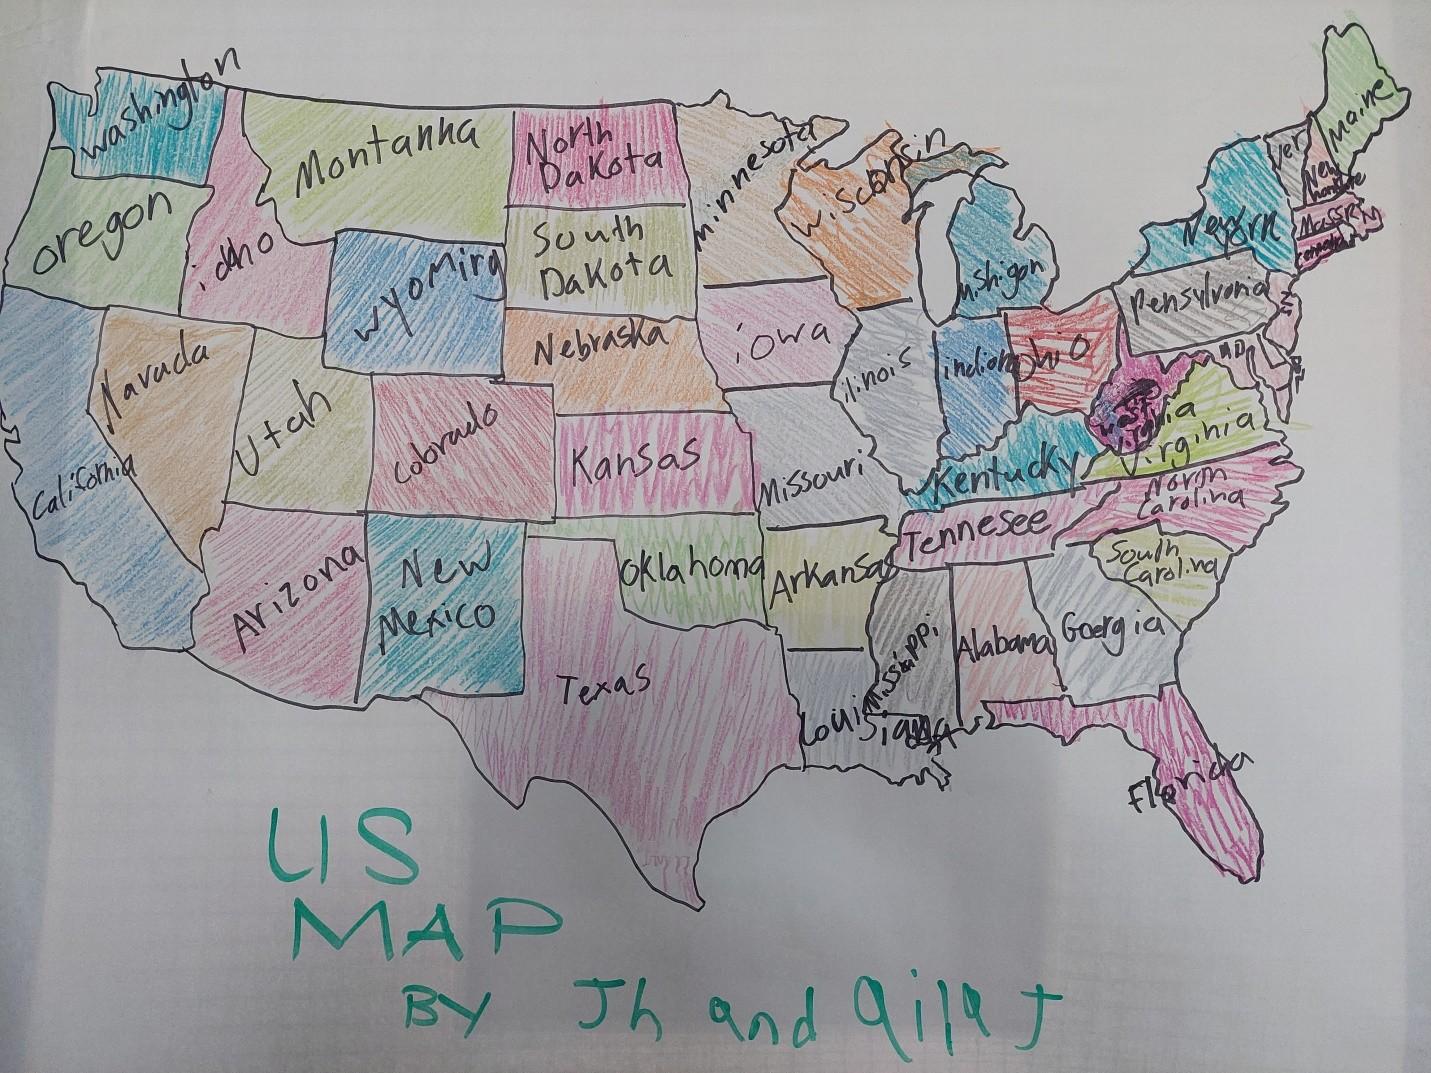 Washington
Oregon
idaho
Montanna
North
Dakota
South
Dakota
Minnesota
Wisconsin
Michigon
wyoming
Nebraska
iowa
ilinois
indiona
OhiO
Pensylvania
Maine
Ver
New
Massr
MD
California
Navada
Utah
Colorado
Kansas
Missouri
Kentucky
Virginia
Tennesee
North
Carolina
South
Carolina
Arizona
New
Mexico
Oklahoma
Arkansas
Texas
Louisiana
Mississippi
Alabama
Goergia
Florida
US
MAP
BY Jh and Aila J